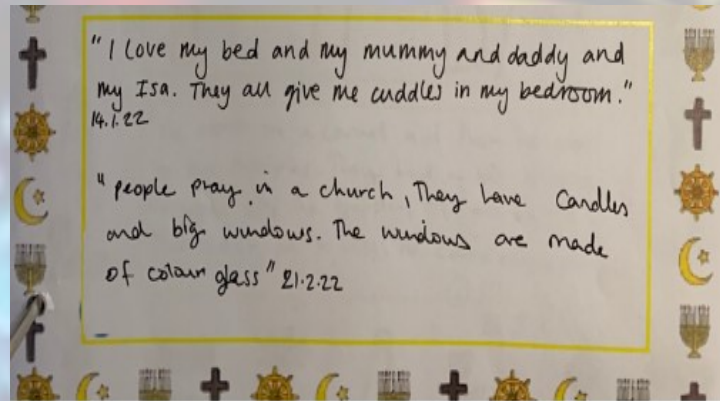 "I love my bed and my mummy and daddy and
my Isa. They all give me cuddles in my bedroom."
14.1.22
"people pray in a church, They have candles
and big windows. The windows are made
of colour glass" 21.2.22